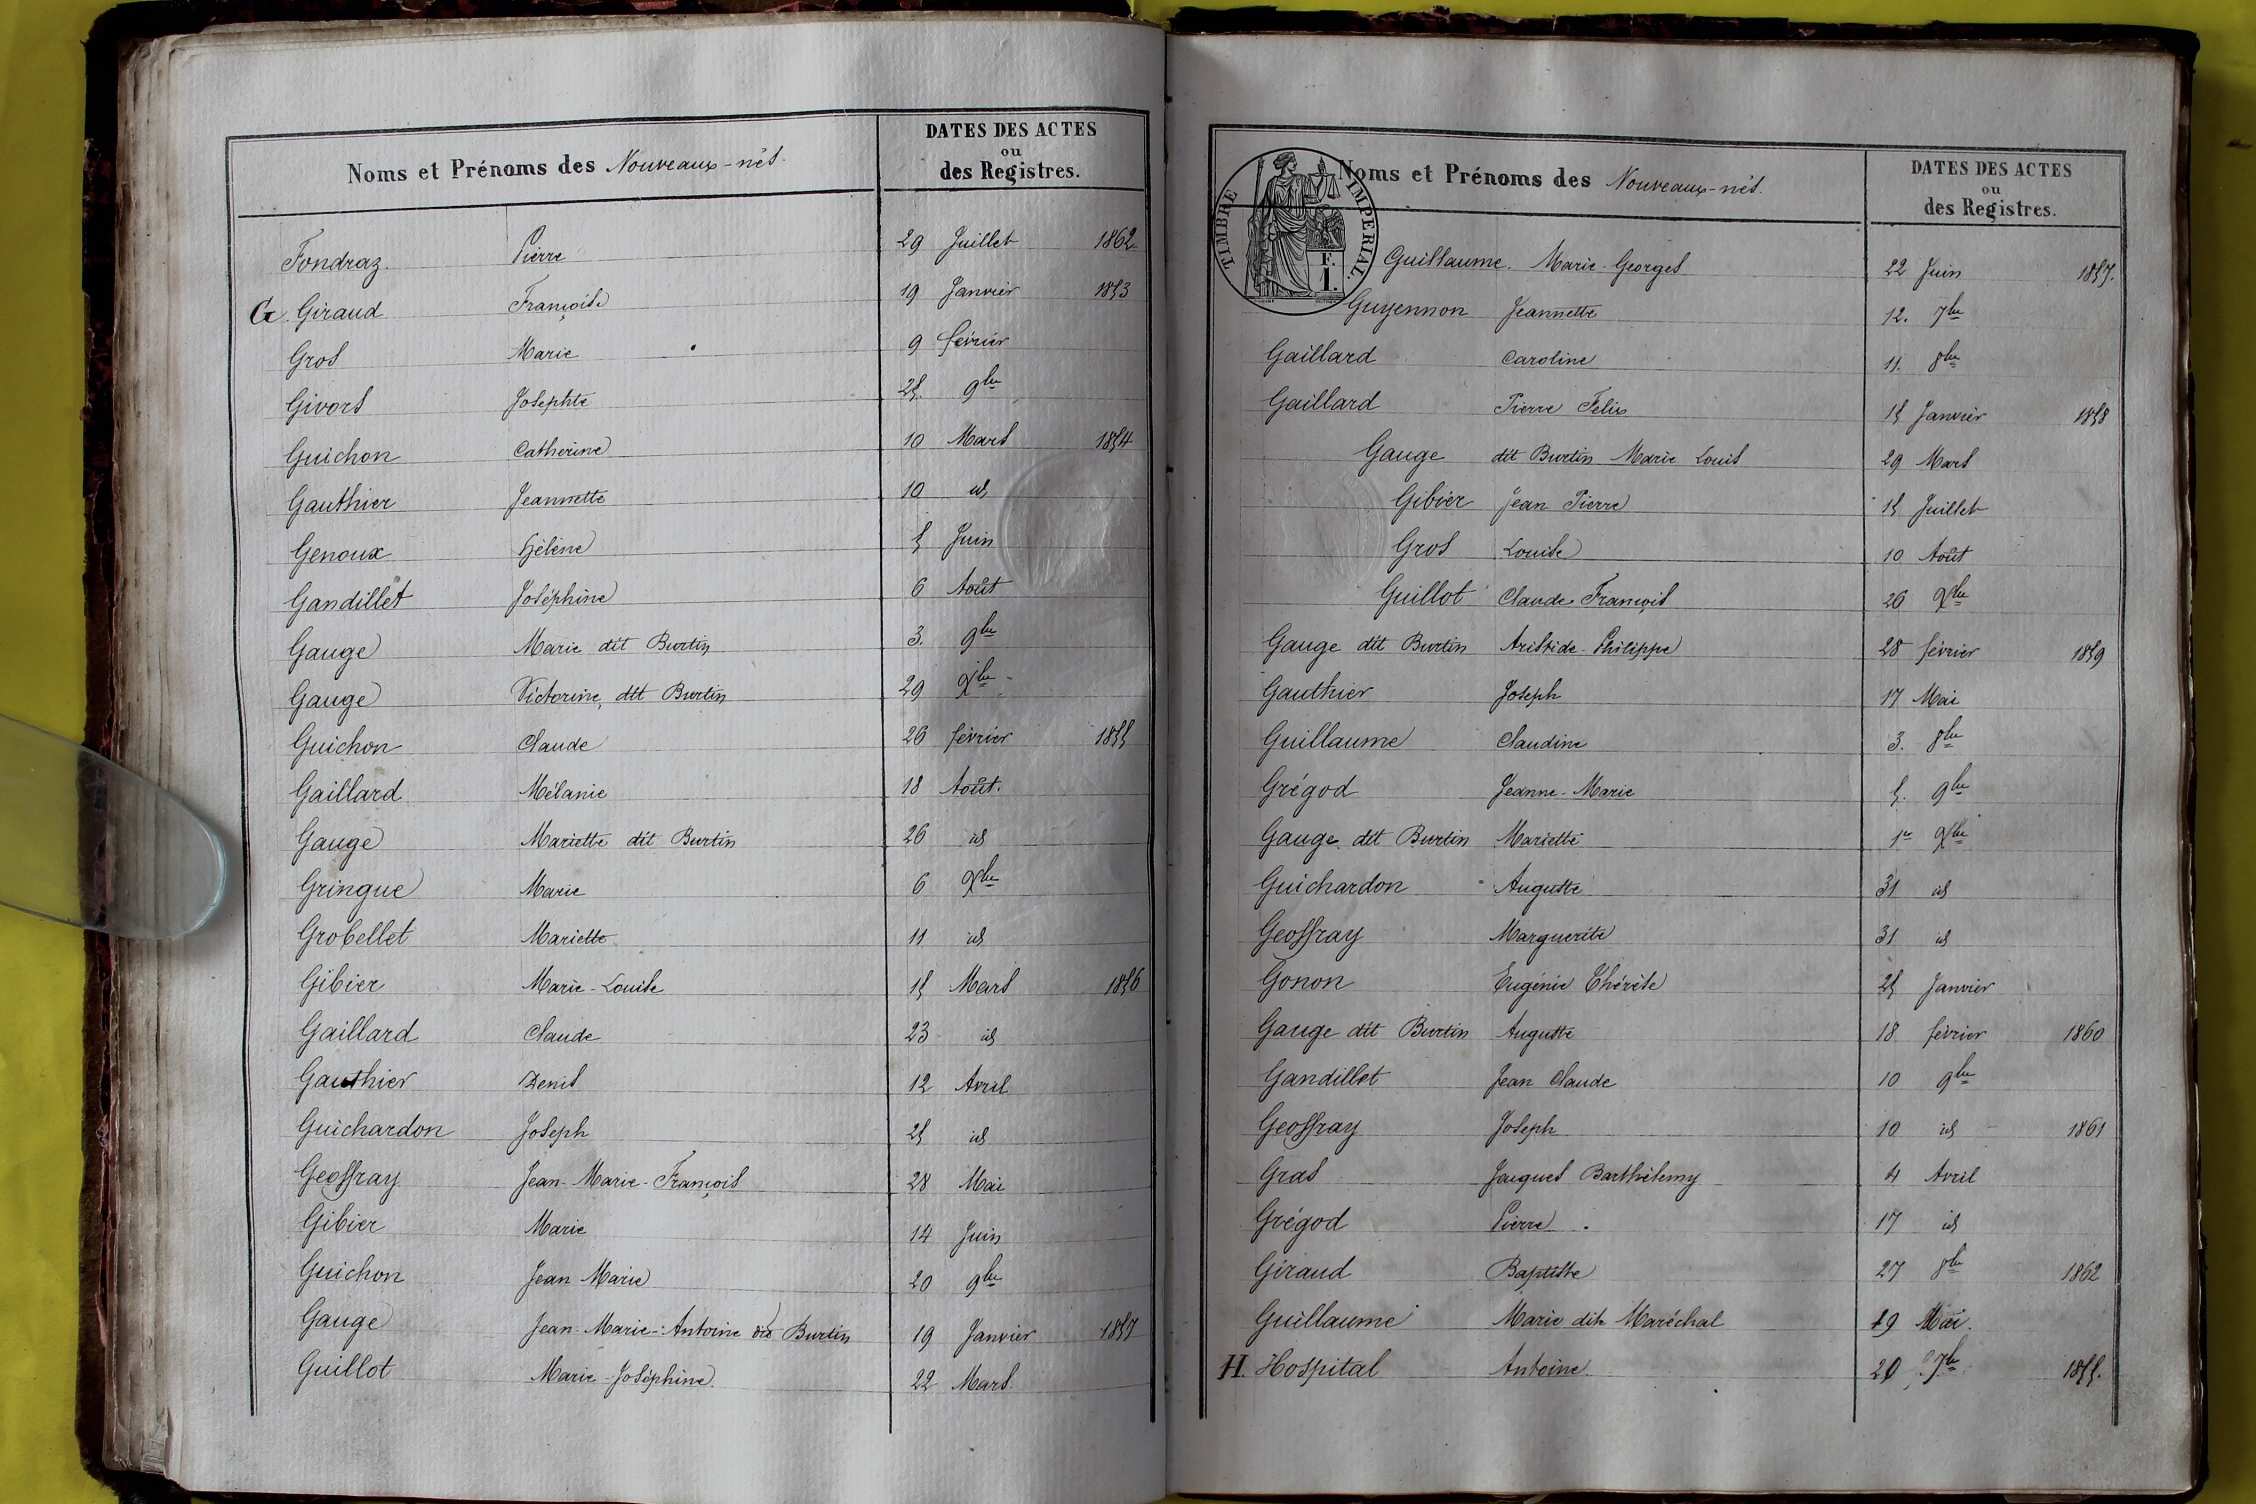 Noms et Prénoms des Nouveaux-nés.
DATES DES ACTES
ou
des Registres.
Fondraz Pierre 29 Juillet 1862
G. Giraud Françoise 19 Janvier 1853
Gros Marie 9 février
Givors Josephte 25. 9bre
Guichon Catherine 10 Mars 1854
Gauthier Jeannette 10 id
Genoux Hélène 5 Juin
Gandillet Joséphine 6 Août
Gauge Marie dit Burtin 3. 9bre
Gauge Victorine, dit Burtin 29 Xbre
Guichon Claude 26 février 1855
Gaillard Mélanie 18 Août.
Gauge Mariette dit Burtin 26 id
Gringue Marie 6 Xbre
Grobellet Mariette 11 id
Gibier Marie-Louise 15 Mars 1856
Gaillard Claude 23 id
Gauthier Denis 12 Avril
Guichardon Joseph 25 id
Geoffray Jean-Marie-François 28 Mai
Gibier Marie 14 Juin
Guichon Jean Marie 20 9bre
Gauge Jean-Marie-Antoine dit Burtin 19 Janvier 1857
Guillot Marie-Joséphine. 22 Mars.
TIMBRE IMPERIAL.
F.
1.
Noms et Prénoms des Nouveaux-nés.
DATES DES ACTES
ou
des Registres.
Guillaume. Marie-Georges 22 Juin 1857.
Guyennon Jeannette 12. 7bre
Gaillard Caroline 11. 8bre
Gaillard Pierre Felix 15 Janvier 1858
Gauge dit Burtin Marie Louis 29 Mars
Gibier Jean Pierre 15 Juillet
Gros Louise 10 Août
Guillot Claude François 26 Xbre
Gauge dit Burtin Aristide-Philippe 28 février 1859
Gauthier Joseph 17 Mai
Guillaume Claudine 3. 8bre
Grégod Jeanne-Marie 5. 9bre
Gauge dit Burtin Mariette 1er Xbre
Guichardon Auguste 31 id
Geoffray Marguerite 31 id
Gonon Eugénie Thérèse 25 Janvier
Gauge dit Burtin Auguste 18 février 1860
Gandillet Jean Claude 10 9bre
Geoffray Joseph 10 id 1861
Gras Jacques Barthélemy 4 Avril
Grégod Pierre 17 id
Giraud Baptiste 27 8bre 1862
Guillaume Marie dite Maréchal 19 Mai.
H. Hospital Antoine. 20 7bre 1855.